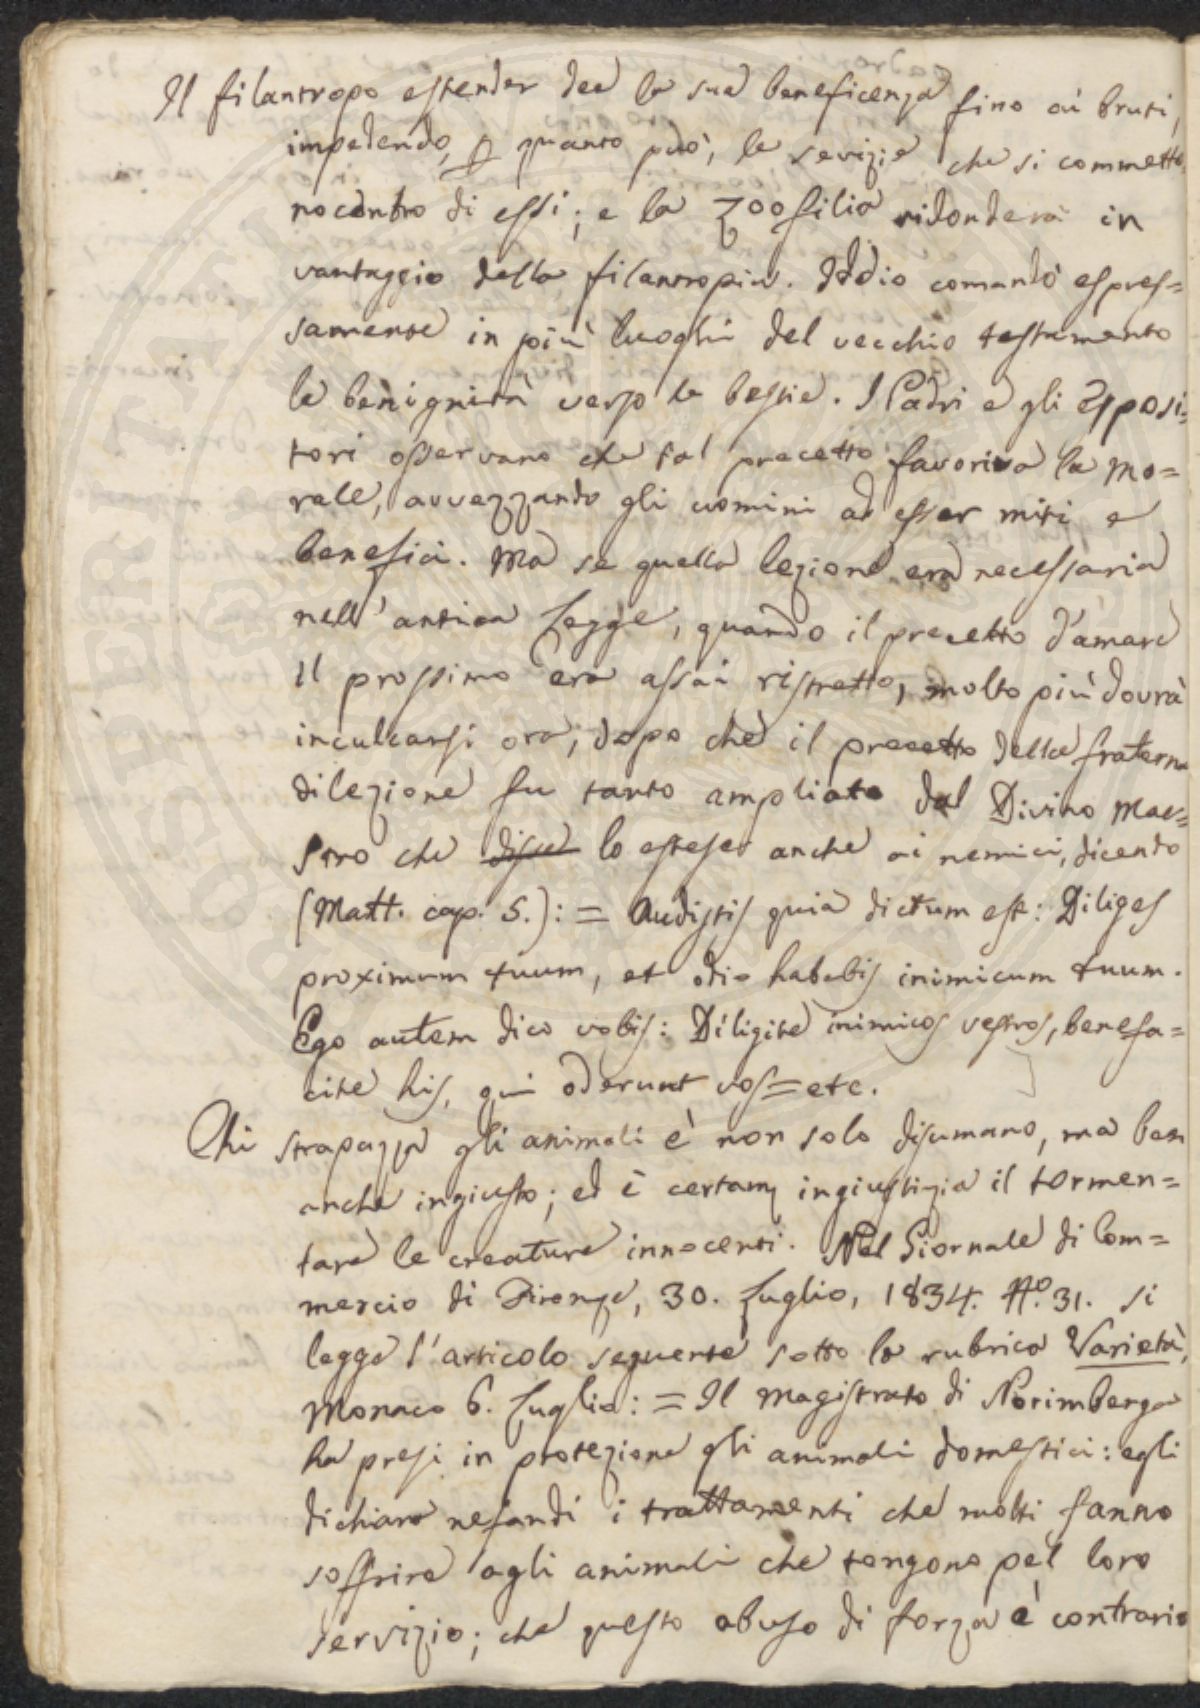 Il filantropo estender dee la sua beneficenza fino ai bruti,
impedendo, p quanto può, le sevizie che si commetto,
no contro di essi; e la zoofilia ridonderà in
vantaggio della filantropia. Iddio comandò espres=
samente in più luoghi del vecchio testamento
la benignità verso le bestie. I Padri e gli Esposi=
tori osservano che tal precetto favoriva la mo=
rale, avvezzando gli uomini ad esser miti e
benefici. Ma se quella lezione era necessaria
nell'antica Legge, quando il precetto d'amare
il prossimo era assai ristretto, molto più dovrà
inculcarsi ora, dopo che il precetto della fraterna
dilezione fu tanto ampliato dal Divino Mae=
stro che disse lo estese anche ai nemici, dicendo
(Matt. cap. 5.): = Audistis quia dictum est: Diliges
proximum tuum, et odio habebis inimicum tuum.
Ego autem dico vobis: Diligite inimicos vestros, benefa=
cite his, qui oderunt vos = etc.
Chi strapazza gli animali è non solo disumano, ma ben
anche ingiusto; ed è certam ingiustizia il tormen=
tare le creature innocenti. Nel Giornale di Com=
mercio di Firenze, 30. Luglio, 1834. No. 31. si
legge l'articolo seguente sotto la rubrica Varietà,
Monaco 6. Luglio: = Il Magistrato di Norimberga
ha presi in protezione gli animali domestici: egli
dichiara nefandi i trattamenti che molti fanno
soffrire agli animali che tengono pel loro
servizio; che questo abuso di forza è contrario
PROSPERITATI